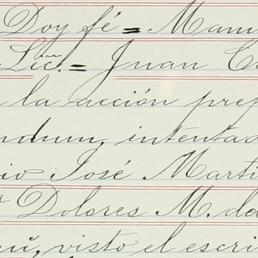 Doy fé = Manu
Lic. = Juan C
la acción prep
ndum, intentad
io José Marti
Dolores M. de
ú, visto el escri